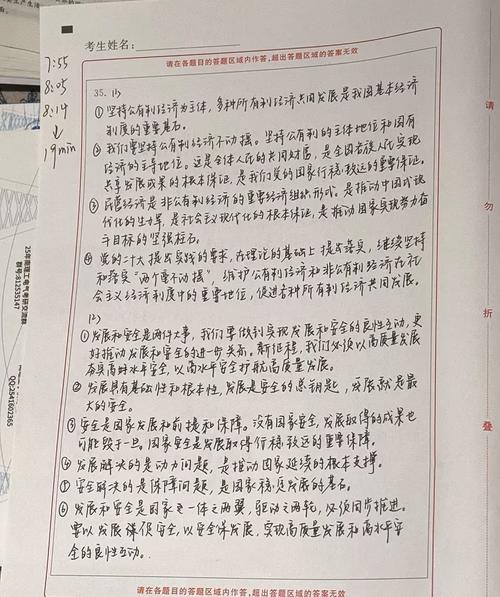 考生姓名:
请在各题目的答题区域内作答,超出答题区域的答案无效
7:55
8:05
8:14
↓
19min
35. 1)
① 坚持公有制经济为主体,多种所有制经济共同发展是我国基本经济
制度的重要基石。
② 我们要坚持公有制经济不动摇。坚持公有制的主体地位和国有
经济的主导地位。这是全体人民的共同财富,是全国各族人民实现
共享发展成果的根本保证,是我们党的国家行稳致远的重要保证。
③ 民营经济是非公有制经济的重要经济组织形式。是推动中国式现
代化的生力军,是社会主义现代化的根本保证,是推动国家实现努力奋
斗目标的坚强柱石。
④ 党的二十大提出实践的要求,在理论的基础上提出落实,继续坚持
和落实“两个毫不动摇”,维护公有制经济和非公有制经济在社
会主义经济制度中的重要地位,促进各种所有制经济共同发展。
12)
① 发展和安全是两件大事,我们要做到实现发展和安全的良性互动,更
好推动发展和安全的进一步关系。新征程,我们必须以高质量发展
夯实高水平安全,以高水平安全护航高质量发展。
② 发展具有基础性和根本性,发展是安全的总钥匙,发展就是最
大的安全。
③ 安全是国家发展和前提和保障。没有国家安全,发展取得的成果也
可能毁于一旦,国家安全是发展取得行稳致远的重要保障。
④ 发展解决的是动力问题,是推动国家延续的根本支撑。
⑤ 安全解决的是保障问题,是国家稳定发展的基石。
⑥ 发展和安全是国家一体之两翼,驱动之两轮,必须同步推进。
要以发展保安全,以安全保发展,实现高质量发展和高水平安
全的良性互动。
请在各题目的答题区域内作答,超出答题区域的答案无效
请
沿
此
折
叠
25年南理工电气考研交流群
群号:812535147
QQ:2541602365